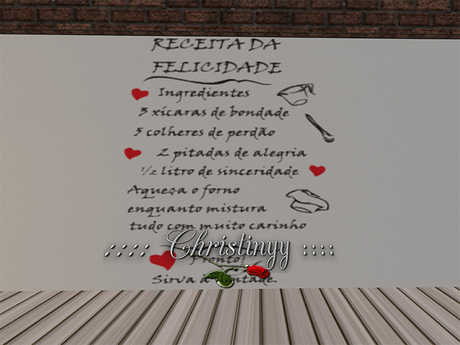 RECEITA DA
FELICIDADE
Ingredientes
3 xícaras de bondade
5 colheres de perdão
2 pitadas de alegria
1/2 litro de sinceridade
Aqueça o forno
enquanto mistura
tudo com muito carinho
.:.:.: Christinyy ::::
Pronto!
Sirva à vontade.